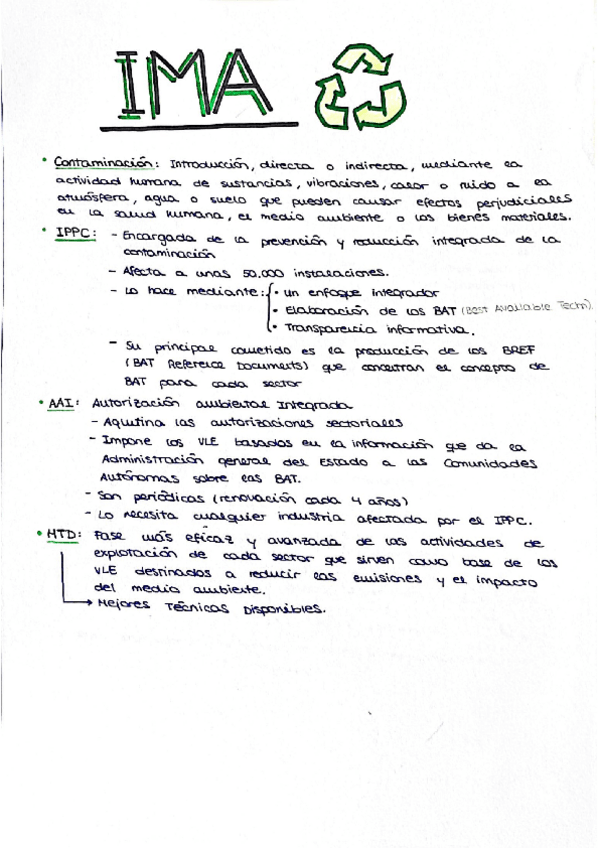 IMA
• Contaminación: Introducción, directa o indirecta, mediante la
actividad humana de sustancias, vibraciones, calor o ruido a la
atmósfera, agua o suelo que pueden causar efectos perjudiciales
en la salud humana, el medio ambiente o los bienes materiales.
• IPPC: - Encargada de la prevención y reducción integrada de la
contaminación
- Afecta a unas 50.000 instalaciones.
- Lo hace mediante: • un enfoque integrador
• Elaboración de los BAT (Best Available Techn).
• Transparencia informativa.
- Su principal cometido es la producción de los BREF
(BAT Reference Documents) que concentran el concepto de
BAT para cada sector
• AAI: Autorización ambiental Integrada
- Aglutina las autorizaciones sectoriales
- Impone los VLE basados en la información que da la
Administración general del Estado a las Comunidades
Autónomas sobre las BAT.
- Son periódicas (renovación cada 4 años)
- Lo necesita cualquier industria afectada por el IPPC.
• MTD: Fase más eficaz y avanzada de las actividades de
explotación de cada sector que sirven como base de los
VLE destinados a reducir las emisiones y el impacto
del medio ambiente.
→ Mejores Técnicas Disponibles.